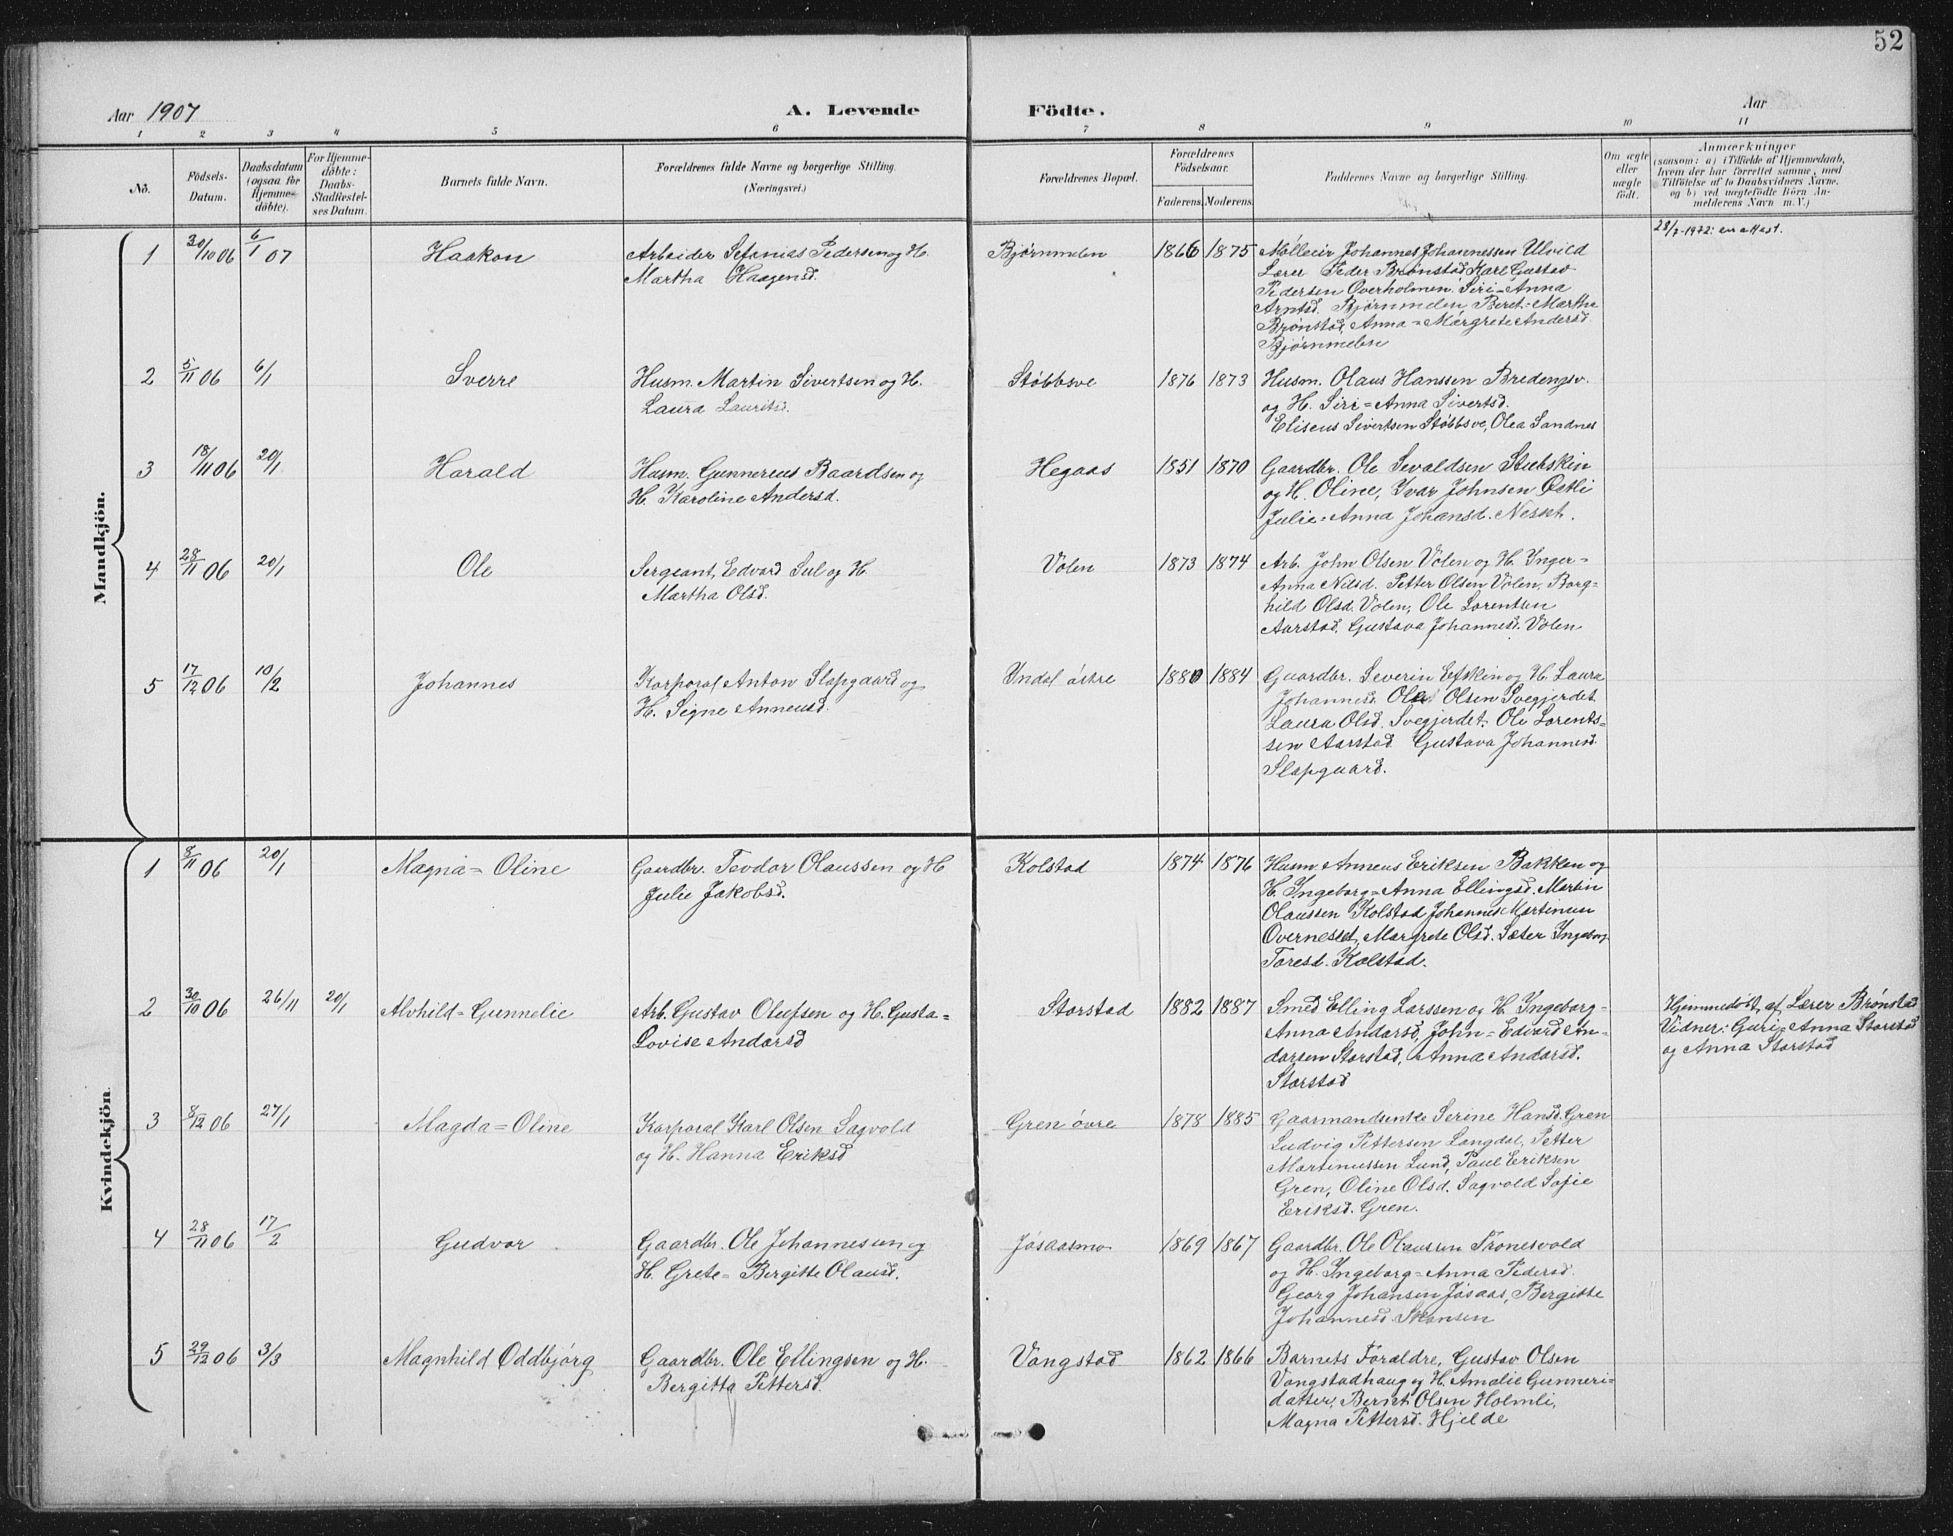 52
Aar 1907
A. Levende Födte.
Aar
1 2 3 4 5 6 7 8 9 10 11
No.
Födsels-Datum.
Daabsdatum (ogsaa for Hjemme-döbte).
For Hjemme-döbte: Daabs-Stadfæstel-ses Datum.
Barnets fulde Navn.
Forældrenes fulde Navne og borgerlige Stilling. (Næringsvei.)
Forældrenes Bopæl.
Forældrenes Födselsaar.
Faderens. Moderens.
Faddernes Navne og borgerlige Stilling.
Om ægte eller uægte födt.
Anmærkninger
(saasom: a) i Tilfælde af Hjemmedaab, hvem der har forrettet samme, med Tilföielse af to Daabsvidners Navne, og b) ved uægtefödte Börn An-melderens Navn m. V.)
Mandkjön.
28/7-1972: en attest.
1 30/10 06 6/1 07 Haakon Arbeider Sefanias Pedersen og H. Bjørnmelen 1866 1875 Mølleeier Johannes Johannessen Ulvild
Martha Haagensd. Lærer Peder Brønstad Karl Gustav
Pedersen Overholmen. Siri=Anna
Arntsd. Bjørnmelen Beret=Martha
Brønstad, Anna=Margrete Andersd.
Bjørnmelen
2 5/11 06 6/1 Sverre Husm. Martin Sivertsen og H. Støbbsve 1876 1873 Husm. Olaus Hanssen Bredengsv.
Laura Lauritsd. og H. Siri=Anna Sivertsd.
Eliseus Sivertsen Støbbsve, Olea Sandnes
3 18/11 06 20/1 Harald Husm. Gunnereus Baardsen og Hegaas 1851 1870 Gaardbr. Ole Sevaldsen Stubskin
H. Karoline Andersd. og H. Oline, Ivar Johnsen Østli
Julie=Anna Johansd. Nesset.
4 28/11 06 20/1 Ole Sergeant, Edvard Sul og H. Volen 1873 1874 Arb. John Olsen Volen og H. Inger=
Martha Olsd. Anna Nilsd. Petter Olsen Volen, Borg=
hild Olsd. Volen, Ole Lorentsen
Aarstad, Gustava Johannesd. Volen
5 17/12 06 10/2 Johannes Korporal Anton Slapgaard og Undal östre 1880 1884 Gaardbr. Severin Efskin og H. Laura
H. Signe Anneusd. Johannesd. Ole Olsen Svegjerdet
Laura Olsd. Svegjerdet. Ole Lorents=
sen Aarstad Gustava Johannesd.
Slapgaard.
Kvindekjön.
1 8/11 06 20/1 Magna=Oline Gaardbr. Teodor Olaussen og H Kolstad 1874 1876 Husm. Anneus Eriksen Bakken og
Julie Jakobsd. H. Ingeborg=Anna Ellingsd. Martin
Olaussen Kolstad Johannes Martinsen
Overnesset, Margrete Olsd. Sæter Ingeborg
Toresd. Kolstad.
2 30/10 06 26/11 20/1 Alvhild=Gunnelie Arb. Gustav Olufsen og H. Gusta= Storstad 1882 1887 Smed Elling Larssen og H. Ingeborg- Hjemmedöbt af Lærer Brønstad
Lovise Andersd Anna Andersd, John=Edvard An- Vidner: Guri=Anna Storstad
dersen Storstad, Anna Andersd. og Anna Storstad
Storstad
3 8/12 06 27/1 Magda=Oline Korporal Karl Olsen Sagvold Gren övre 1878 1885 Gaarmandsenke Serine Hansd. Gren
og H. Hanna Eriksd Ludvig Pettersen Langdal, Petter
Martinussen Lund, Paul Eriksen
Gren, Oline Olsd. Sagvold Sofie
Eriksd. Gren.
4 28/11 06 17/2 Gudvor Gaardbr. Ole Johannesen og Jøsaasmo 1869 1867 Gaardbr. Ole Olaussen Tronesvold
H. Grete=Bergitte Olausd. og H. Ingeborg=Anna Pedersd.
Georg Johansen Jøsaas, Bergitte
Johannesd. Skansen
5 29/12 06 3/3 Magnhild Oddbjörg Gaardbr. Ole Ellingsen og H. Vangstad 1862 1866 Barnets Forældre, Gustav Olsen
Bergitta Pettersd. Vangstadhaug og H. Amalie Gunneri=
datter, Bernt Olsen Holmli,
Magna Pettersd. Hjelde